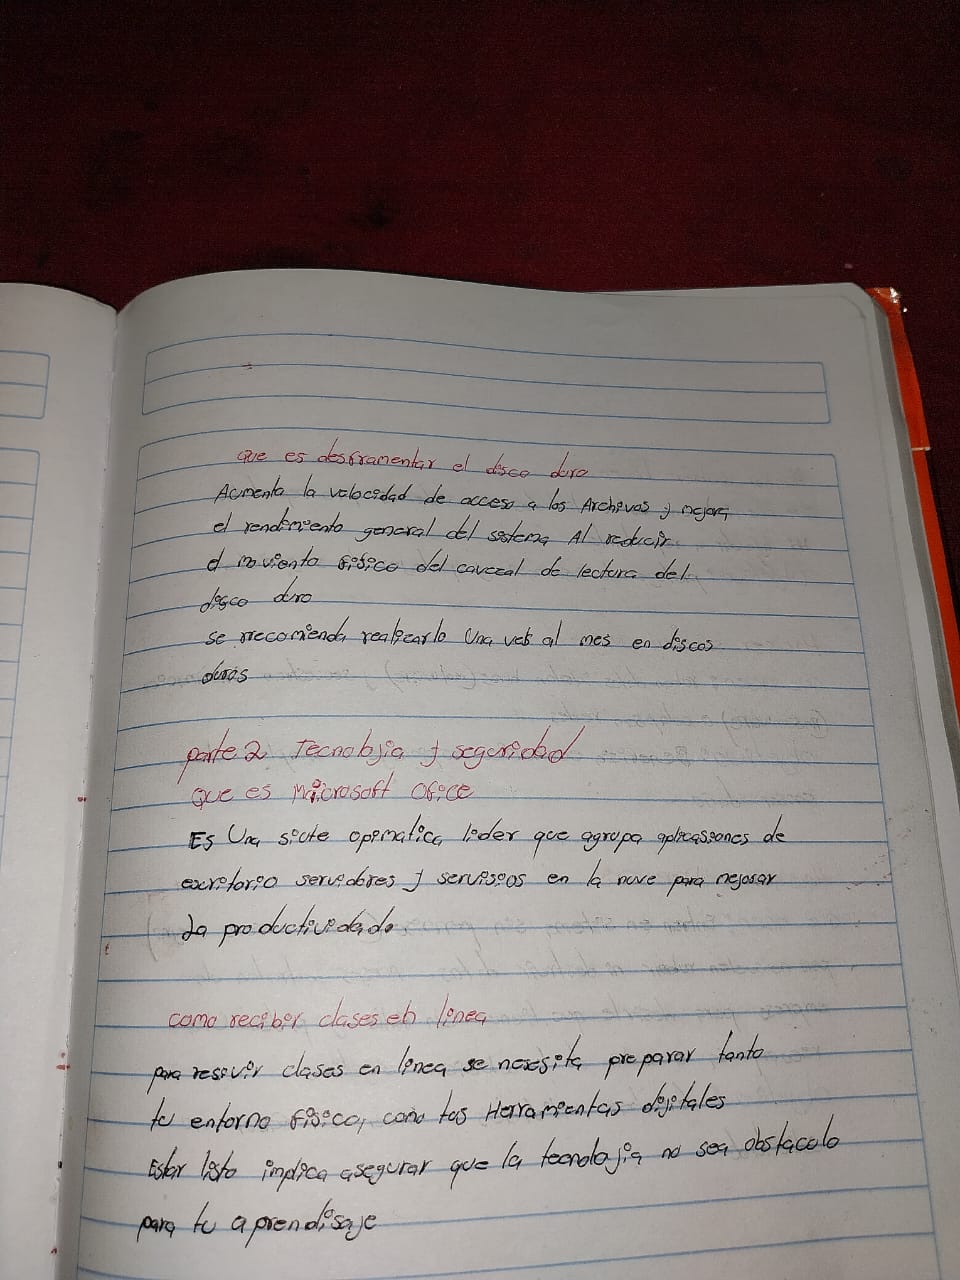 que es desframentar el disco duro
Aumenta la velocidad de acceso a los Archivos y mejora
el rendimiento general del sistema Al reducir
el moviento fisico del cavezal de lectura del
disco duro
se rrecomienda realizarlo Una ves al mes en discos
duros
parte 2 Tecnolojia y seguridad
Que es Microsoft Ofice
Es Una siute opimatica lider que agrupa aplicassiones de
excritorio servidores y serviseos en la nuve para mejorar
La productividad.
como reciber clases en linea
para resivir clases en linea se nesesita preparar tanto
tu entorno fisico, como tas Herramientas dijitales
Estar listo implica asegurar que la tecnolojia no sea obstacolo
para tu aprendisaje